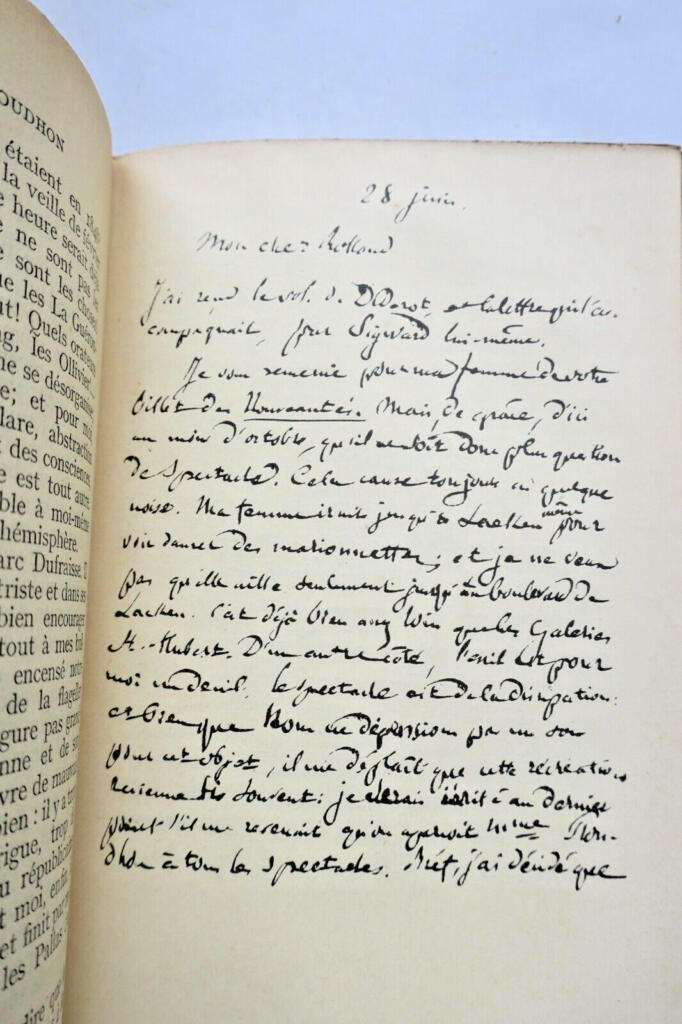 OUDHON
étaient en
la veille de
heure serait
ne sont pas
sont les choses
les La Guéron
ut! Quels orateurs
les Ollivier
ne se désorganise
e; et pour moi
lare, abstraction
t des consciences
e est tout autre
ble à moi-même
hémisphère.
arc Dufraisse.
triste et dans ses
bien encourager
tout à mes
encensé
de la
gure pas
nne et de
vre de
bien : il y a
rigue, trop
u républicain
t moi, enfin
et finit par
les
dire que
28 juin.
Mon cher Rolland
J'ai rend le vol. de Diderot, et la lettre qui l'ac-
compagnait, pour Sigward lui-même.
Je vous remercie pour ma femme de votre
billet des Nouveautés. Mais, de grâce, d'ici
au mois d'octobre, qu'il ne soit donc plus question
de spectacles. Cela cause toujours ici quelque
noise. Ma femme irait jusqu'à Laeken même pour
voir danser des marionnettes; et je ne veux
pas qu'elle aille seulement jusqu'au boulevard de
Laeken. C'est déjà bien assez loin que les Galeries
St-Hubert. D'un autre côté, l'exil est pour
moi un deuil. le spectacle est de la dissipation:
et bien que nous ne dépensions pas un sou
pour cet objet, il me déplaît que cette récréation
revienne si souvent: je serais vexé au dernier
point s'il me revenait qu'on aperçoit Mme Prou-
dhon à tous les spectacles. Bref, j'ai décidé que